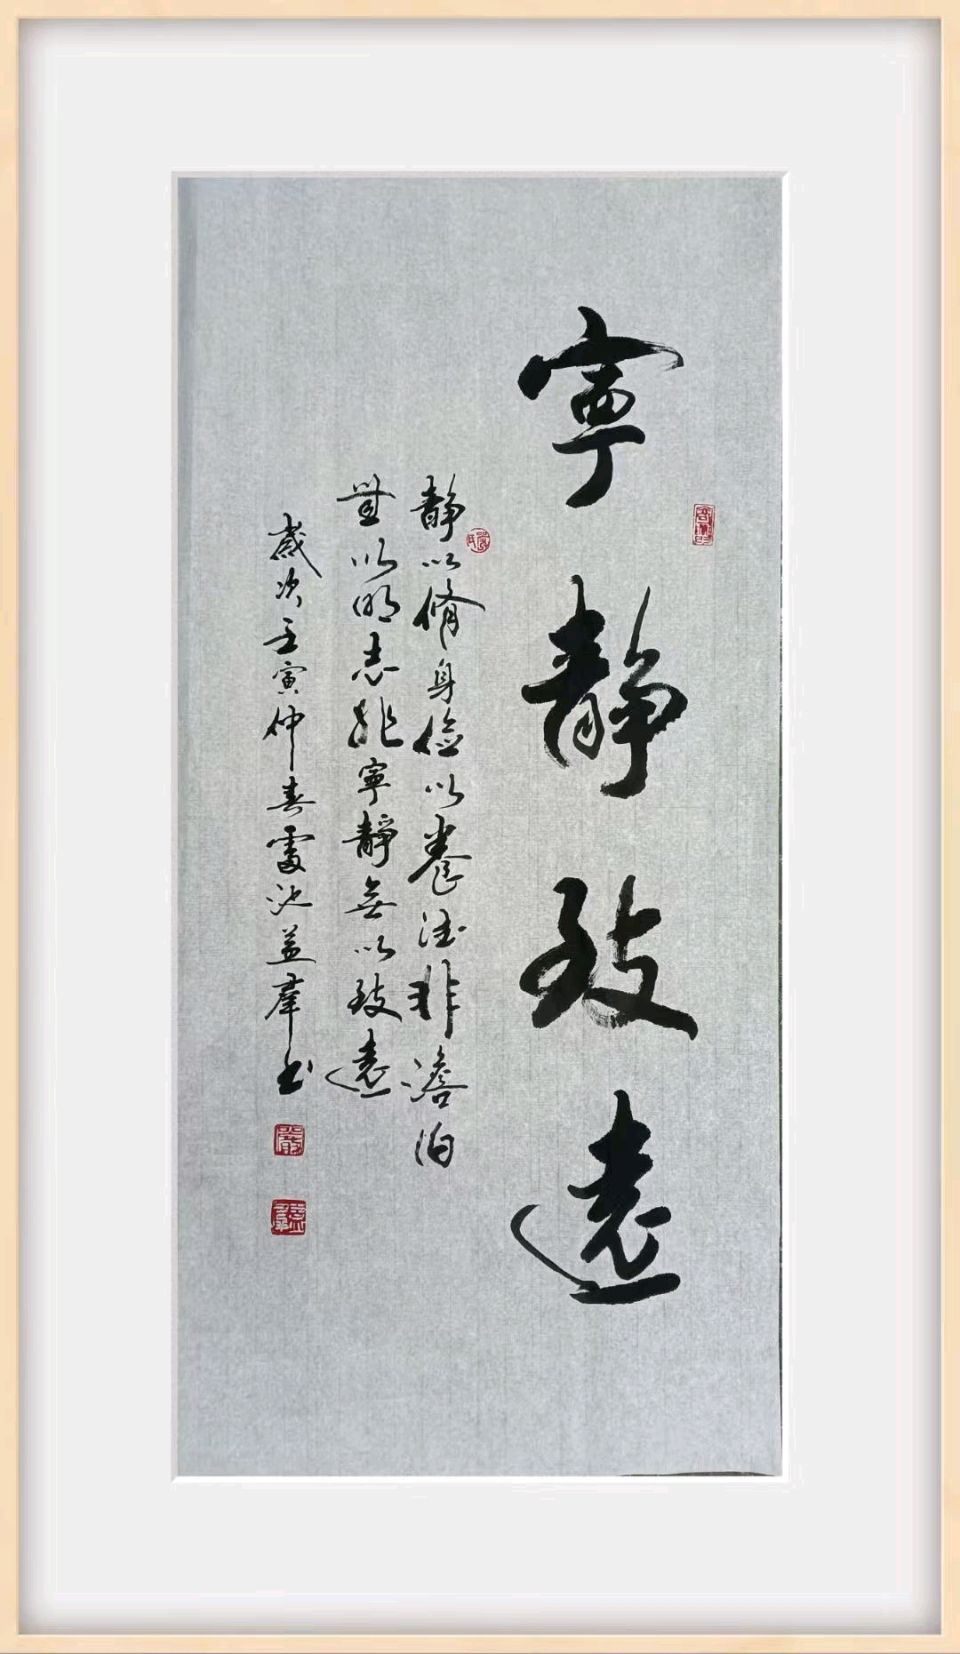 寧靜致遠
静以脩身儉以養德非澹泊
無以明志非寧靜無以致遠
歲次壬寅仲春雷池益群书